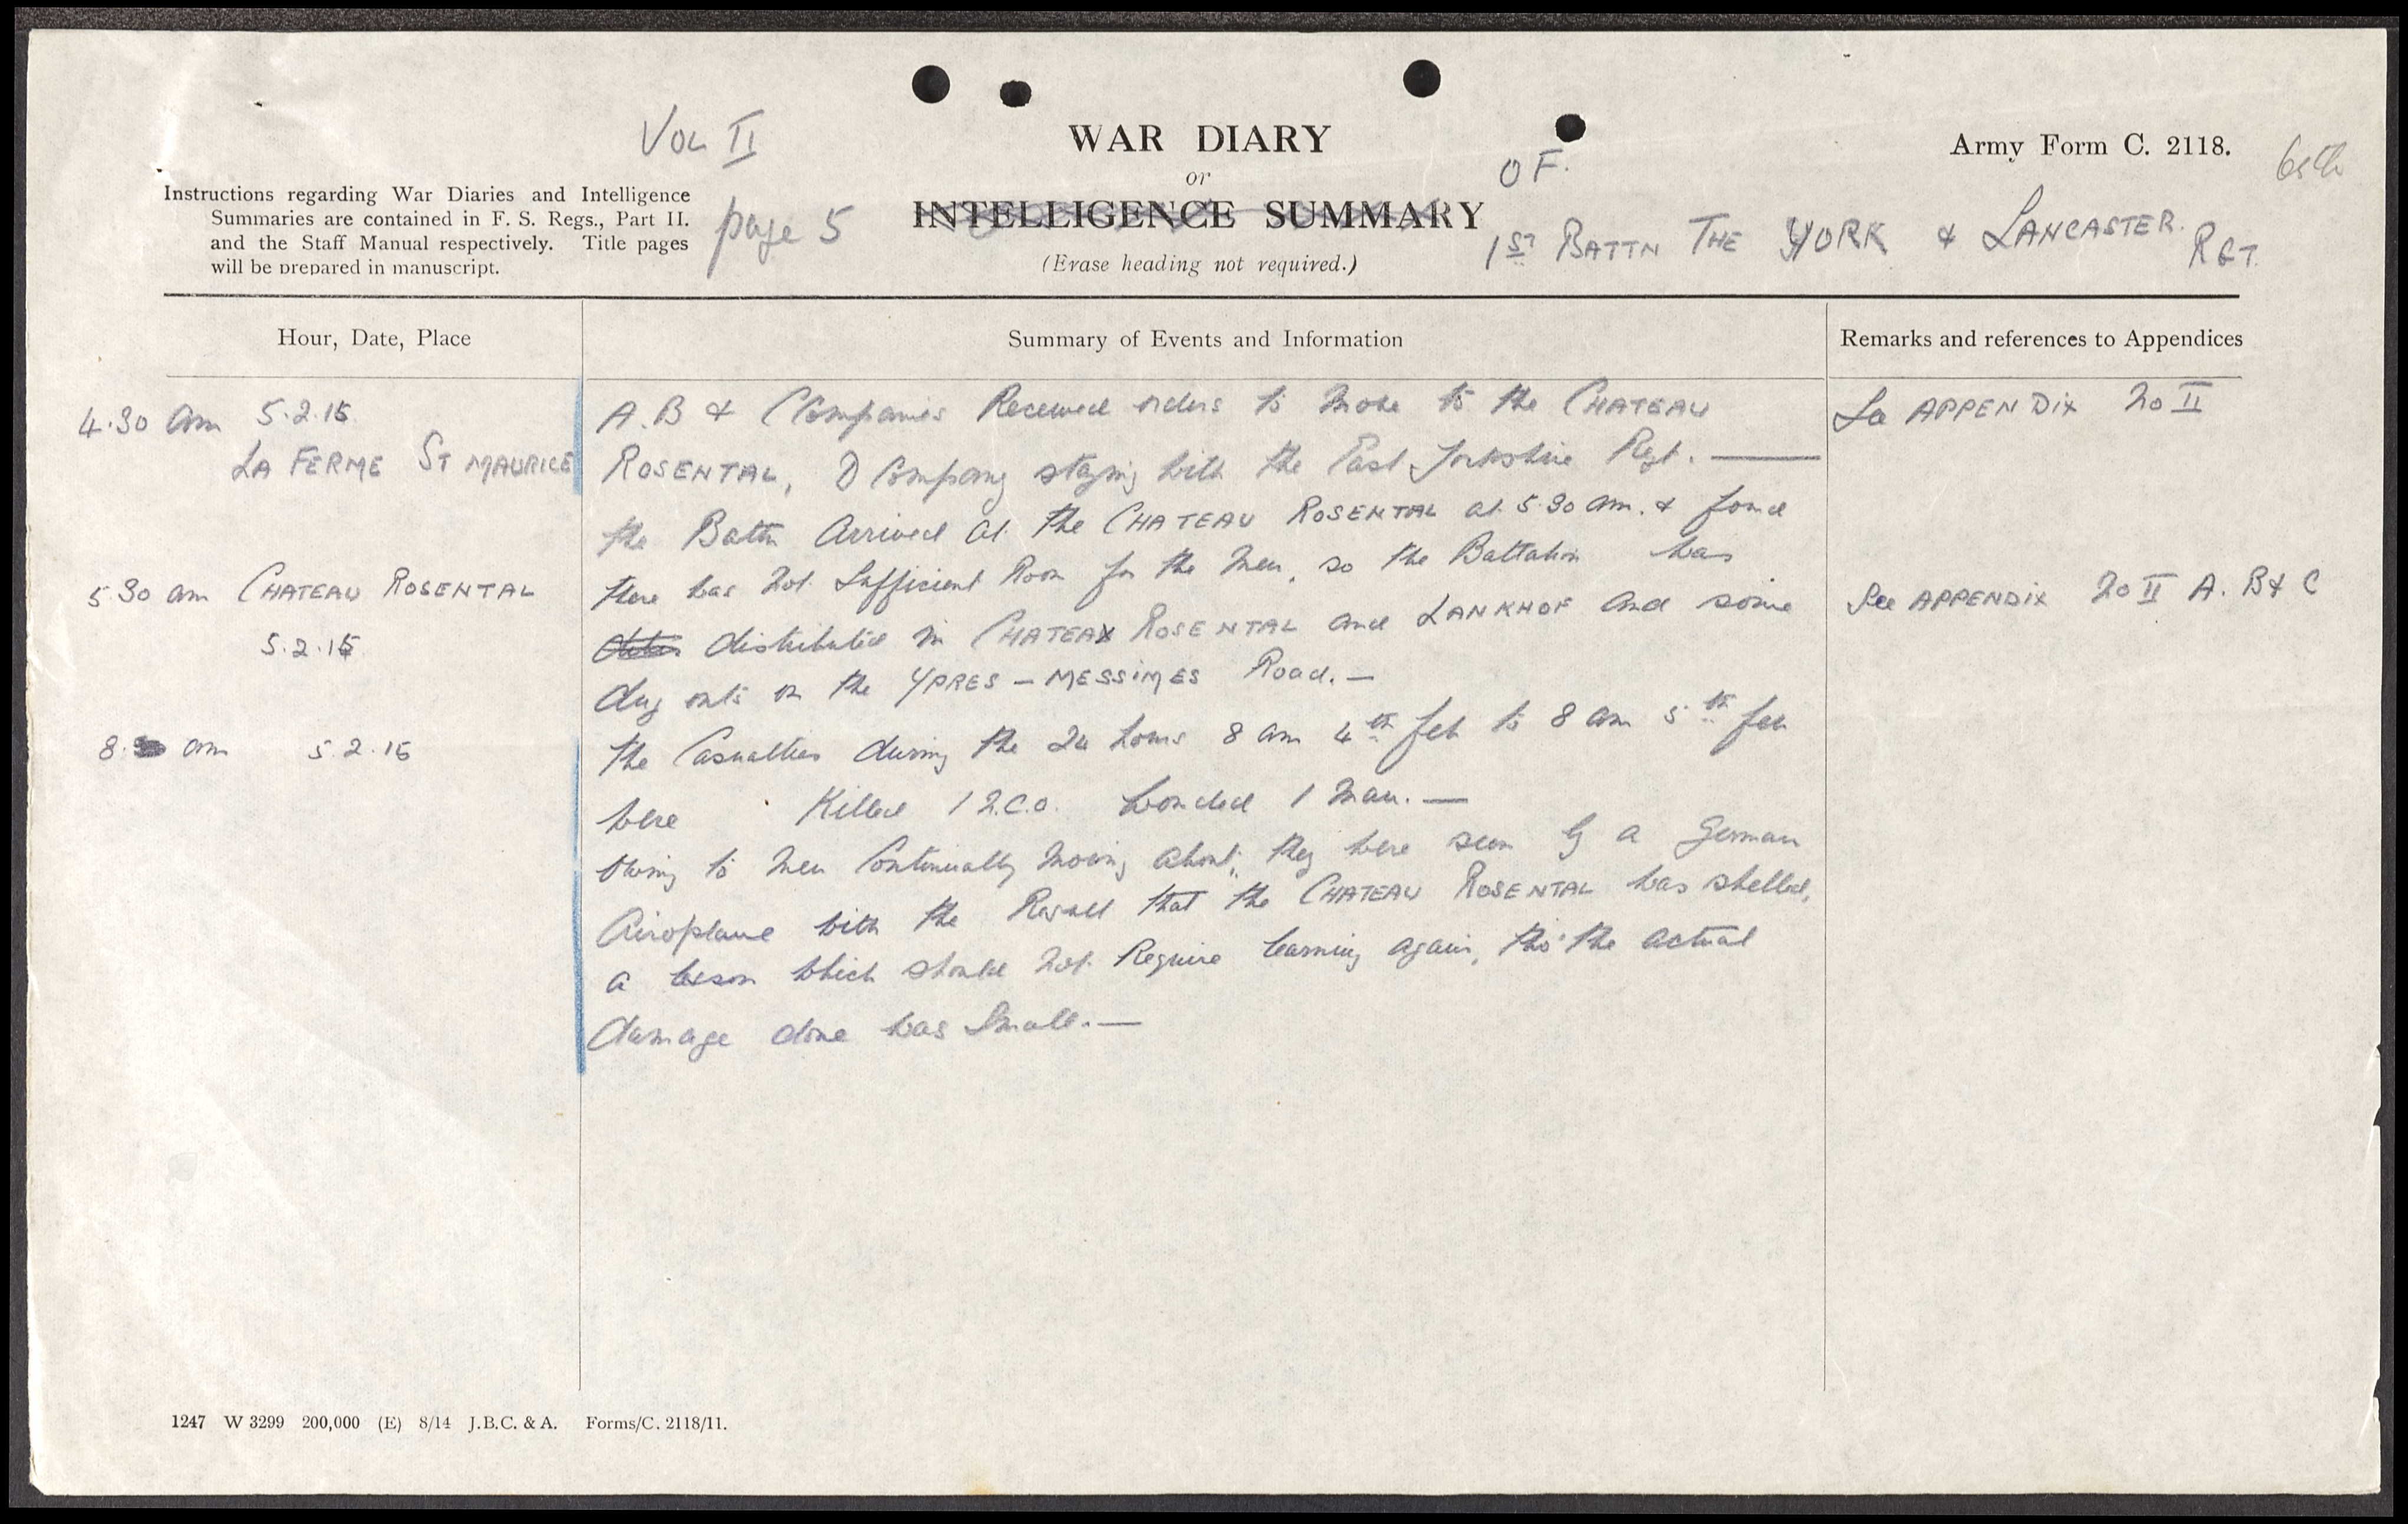 VOL II
WAR DIARY
Army Form C. 2118.
or
OF.
Instructions regarding War Diaries and Intelligence
Summaries are contained in F. S. Regs., Part II.
and the Staff Manual respectively. Title pages
will be prepared in manuscript.
page 5
INTELLIGENCE SUMMARY
1ST BATTN THE YORK & LANCASTER RGT.
(Erase heading not required.)
Hour, Date, Place
Summary of Events and Information
Remarks and references to Appendices
4.30 am 5.2.15
LA FERME ST MAURICE
A.B & C Companies Received orders to move to the CHATEAU
ROSENTAL, D Company staying with the East Yorkshire Regt. —
See APPENDIX No II
5.30 am CHATEAU ROSENTAL
5.2.15
the Battn Arrived at the CHATEAU ROSENTAL at 5.30 am. & found
there was not sufficient Room for the men, so the Battalion was
distributed in CHATEAX ROSENTAL and LANKHOF and some
dug outs on the YPRES – MESSINES Road. —
See APPENDIX No II A. B & C
8. am 5.2.15
the Casualties during the 24 hours 8 am 4th Feb to 8 am 5th Feb
were Killed 1 N.C.O. Wounded 1 Man. —
Owing to men Continually moving about, they were seen by a German
Airoplane with the Result that the CHATEAU ROSENTAL was shelled,
a lesson which should not Require learning again, tho' the actual
damage done was Small. —
1247 W 3299 200,000 (E) 8/14 J.B.C. & A. Forms/C. 2118/11.